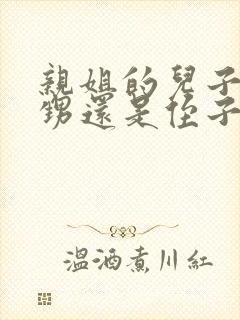 親姐的兒子
甥還是侄子
溫酒煮川紅